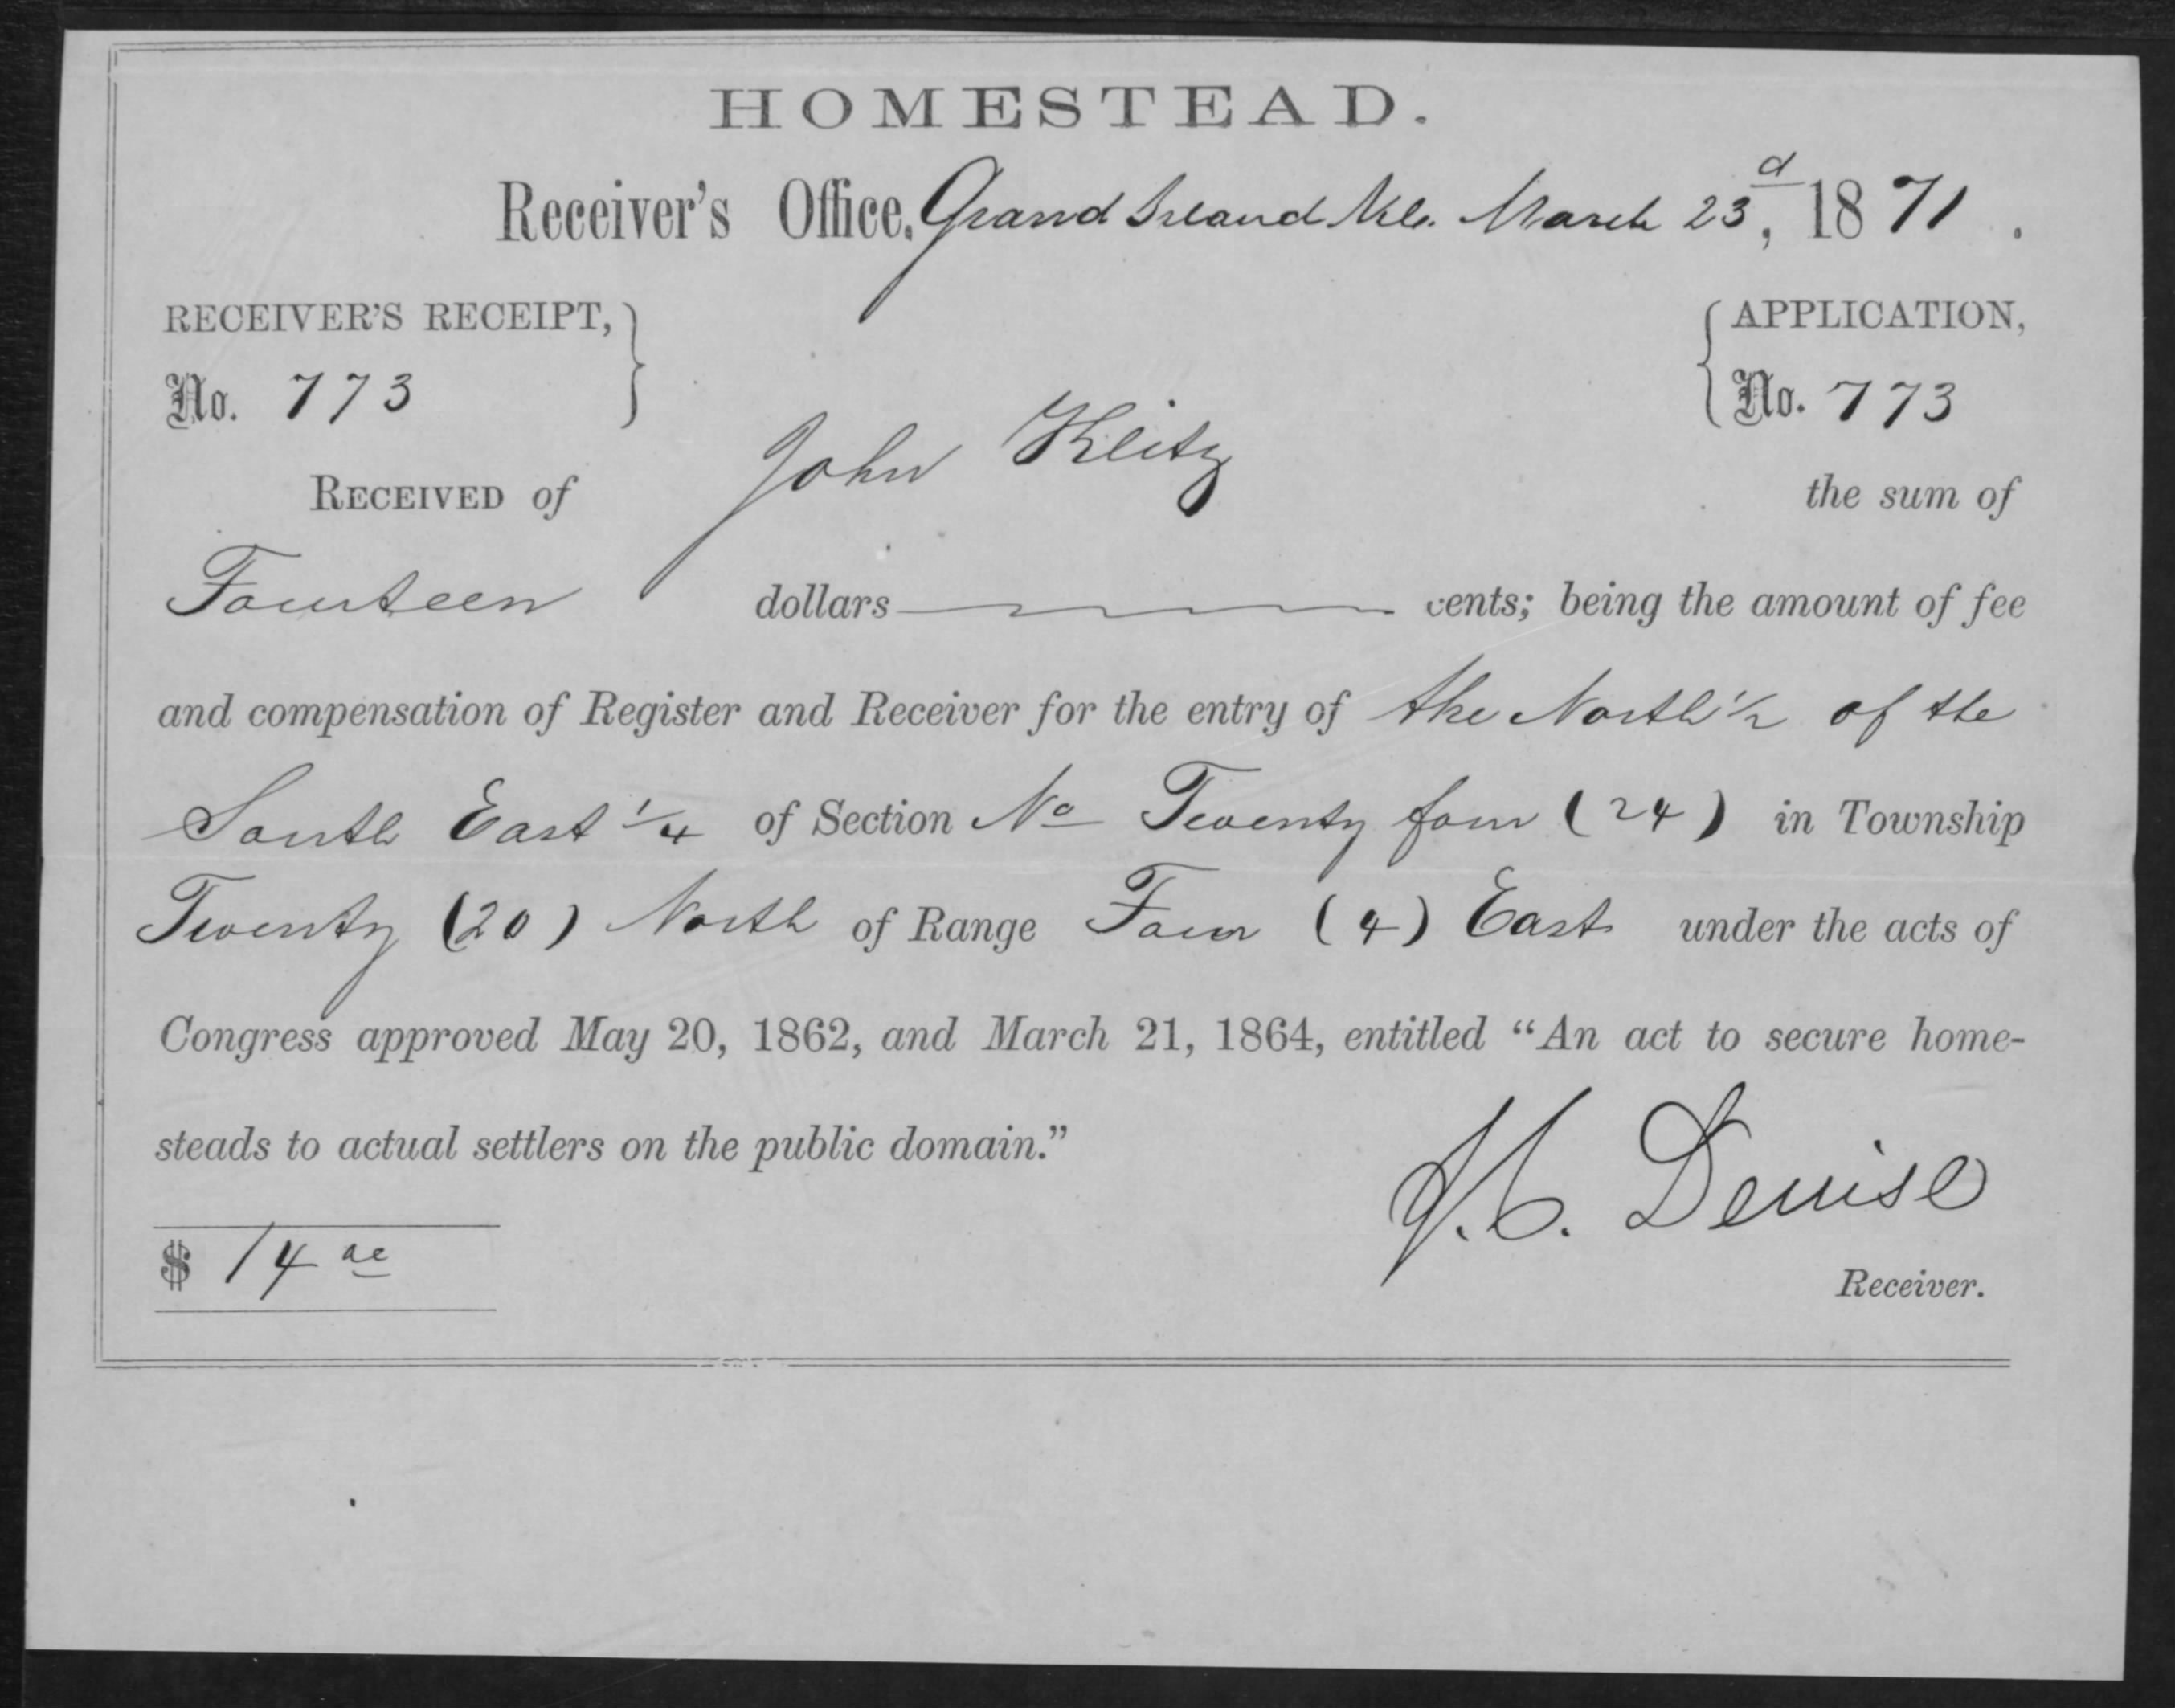 HOMESTEAD.
Receiver's Office, Grand Island Neb. March 23d, 1871.
RECEIVER'S RECEIPT, } { APPLICATION,
No. 773 No. 773
RECEIVED of John Klitz the sum of
Fourteen dollars ——— cents; being the amount of fee
and compensation of Register and Receiver for the entry of the North 1/2 of the
South East 1/4 of Section No Twenty four (24) in Township
Twenty (20) North of Range Four (4) East under the acts of
Congress approved May 20, 1862, and March 21, 1864, entitled "An act to secure home-
steads to actual settlers on the public domain."
$ 14 00
J. C. Denise
Receiver.